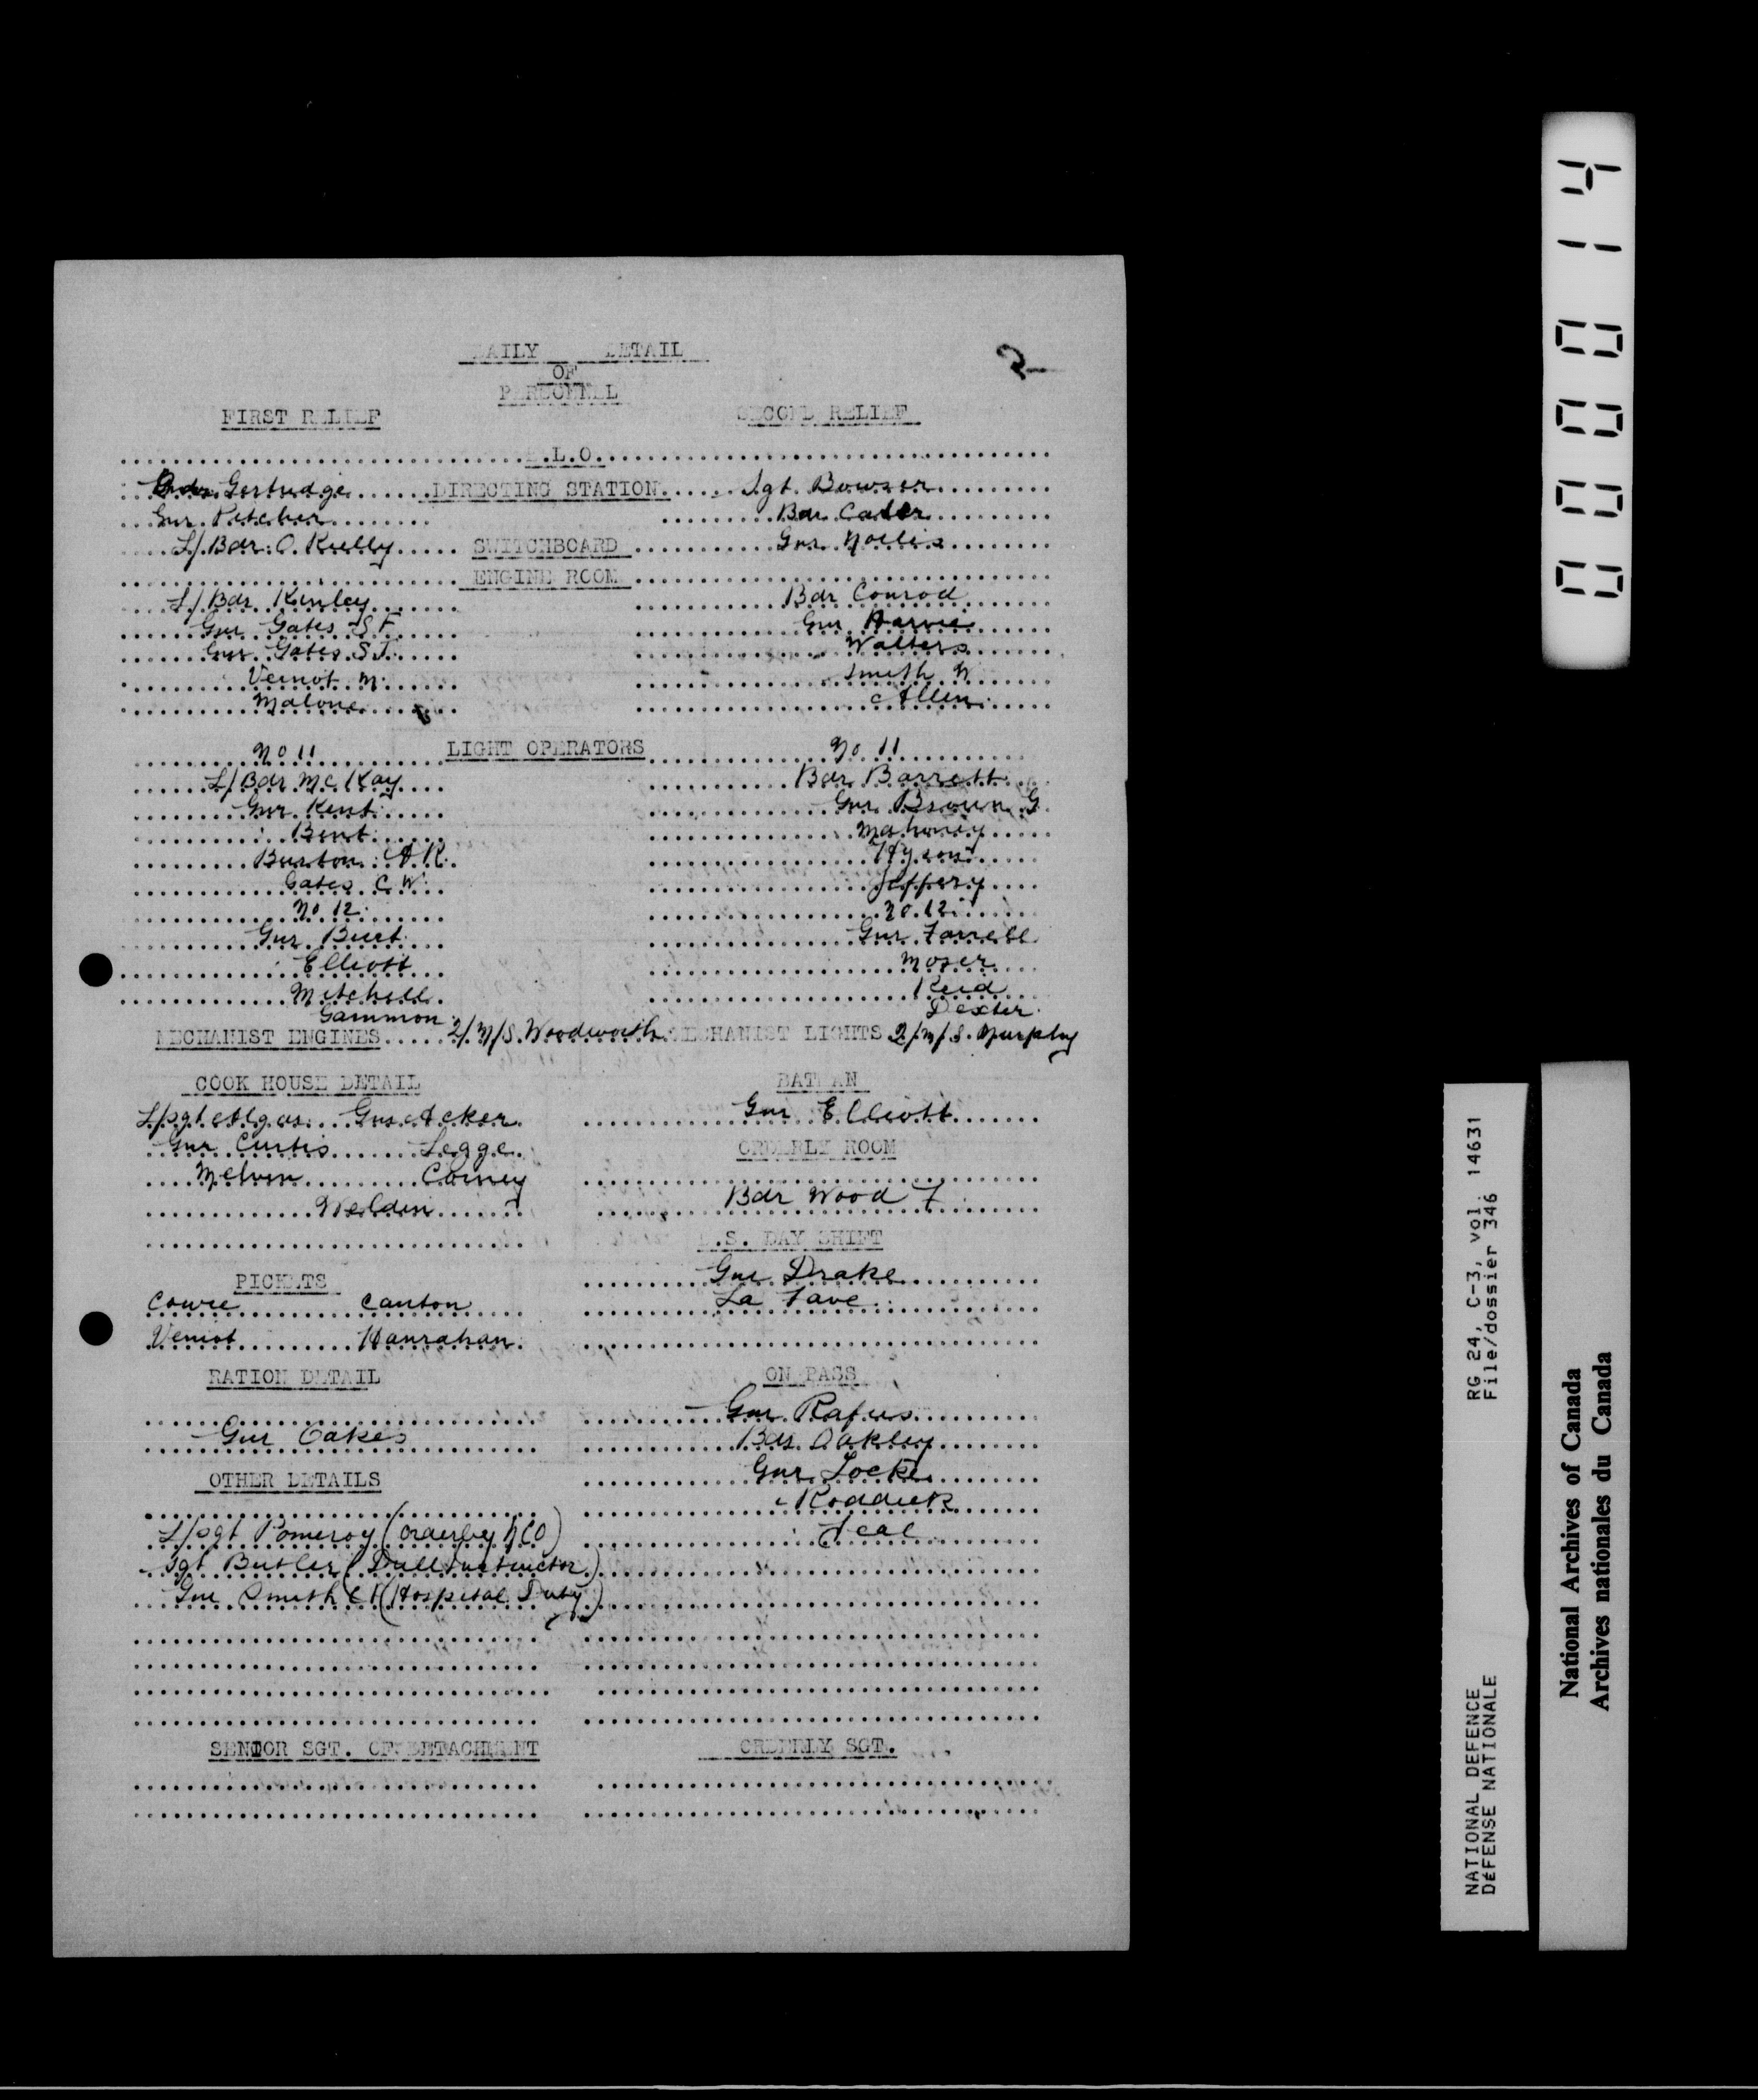 DAILY DETAIL
2
OF
PERSONNEL
FIRST RELIEF SECOND RELIEF
.L.O.
Bdr. Gertridge DIRECTING STATION Sgt. Bowser
Gnr. Pitcher Bdr Calder
L/Bdr. O. Kielly SWITCHBOARD Gnr Nollis
ENGINE ROOM
L/Bdr Kinley Bdr Conrod
Gnr Gates S F Gnr Harvie
Gnr Gates S J. Walters
Veinot M. Smith W
Malone Allen
No 11 LIGHT OPERATORS No. 11
L/Bdr McKay Bdr Barrett
Gnr Kent Gnr Brown G
Bent Mahoney
Burton A R. Hyson
Gates C W. Jeffery
No. 12 No. 12
Gnr Burt Gnr Farrell
Elliott Moser
Mitchell Reid
Gammon Dexter
MECHANIST ENGINES 2/M/S. Woodworth MECHANIST LIGHTS 2/M/S. Murphy
COOK HOUSE DETAIL BATMAN
L/Sgt Algar Gnr Acker Gnr Elliott
Gnr Curtis Legge ORDERLY ROOM
Melvin Corney
Weldin Bdr Wood F
.S. DAY SHIFT
PICKETS Gnr Drake
Cowie Canton La Fave
Veniot Hanrahan
RATION DETAIL ON PASS
Gnr Rafus
Gnr Oakes Bdr. Oakley
OTHER DETAILS Gnr Locke
Roddick
L/Sgt Pomeroy (Orderly NCO)
Sgt Butler (Drill Instructor)
Gnr Smith C H (Hospital Duty)
SENIOR SGT. OF DETACHMENT ORDERLY SGT.
000014
RG 24, C-3, vol. 14631
File/dossier 346
NATIONAL DEFENCE
DÉFENSE NATIONALE
National Archives of Canada
Archives nationales du Canada